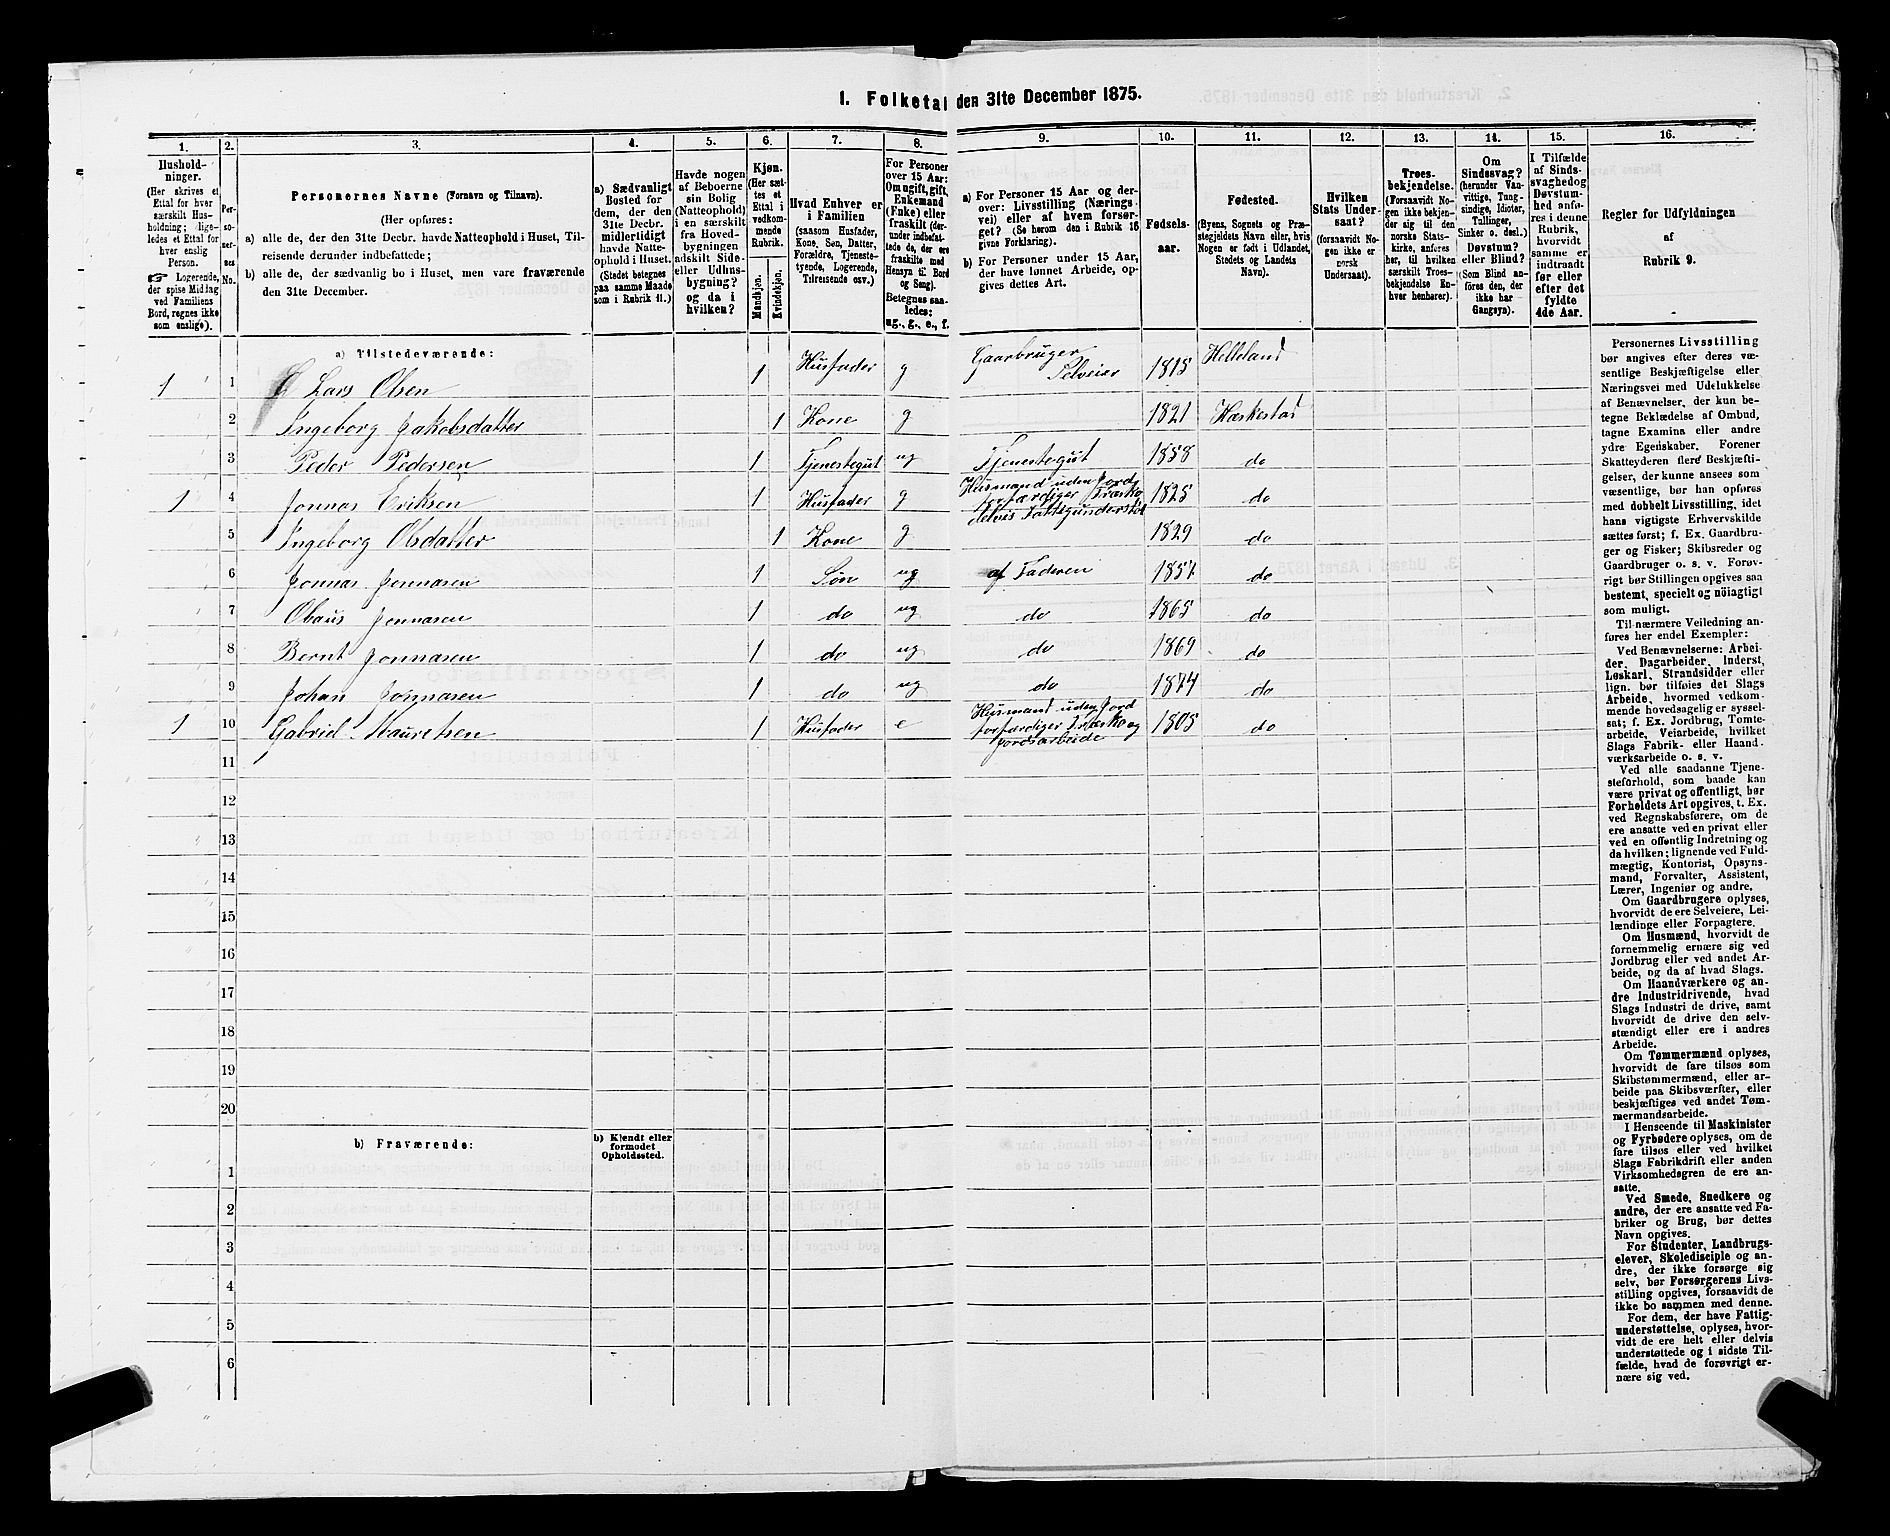 1. Folketal den 31te December 1875.
1.
Hushold-
ninger.
(Her skrives et
Ettal for hver
særskilt Hus-
holdning; lige-
ledes et Ettal for
hver enslig
Person.
☞ Logerende,
der spise Middag
ved Familiens
Bord, regnes ikke
som enslige).
2.
Per-
so-
ner-
nes
No.
3.
Personernes Navne (Fornavn og Tilnavn).
(Her opføres:
a) alle de, der den 31te Decbr. havde Natteophold i Huset, Til-
reisende derunder indbefattede;
b) alle de, der sædvanlig bo i Huset, men vare fraværende
den 31te December.
4.
a) Sædvanligt
Bosted for
dem, der den
31te Decbr.
midlertidigt
havde Natte-
ophold i Huset.
(Stedet betegnes
paa samme Maade
som i Rubrik 11.)
5.
Havde nogen
af Beboerne
sin Bolig
(Natteophold)
i en særskilt
fra Hoved-
bygningen
adskilt Side-
eller Udhus-
bygning?
og da i
hvilken?
6.
Kjøn.
(Her sæt-
tes et
Ettal i
vedkom-
mende
Rubrik.
Mandkjøn.
Kvindekjøn.
7.
Hvad Enhver er
i Familien
(saasom Husfader,
Kone, Søn, Datter,
Forældre, Tjeneste-
tyende, Logerende,
Tilreisende osv.)
8.
For Personer
over 15 Aar:
Om ugift, gift,
Enkemand
(Enke) eller
fraskilt (der-
under indbefat-
tede de, der ere
fraskilte med
Hensyn til Bord
og Seng).
Betegnes saa-
ledes:
ug., g., e., f.
9.
a) For Personer 15 Aar og der-
over: Livsstilling (Nærings-
vei) eller af hvem forsør-
get? (Se herom den i Rubrik 16
givne Forklaring).
b) For Personer under 15 Aar,
der have lønnet Arbeide, op-
gives dettes Art.
10.
Fødsels-
aar.
11.
Fødested.
(Byens, Sognets og Præ-
stegjeldets Navn eller, hvis
Nogen er født i Udlandet,
Stedets og Landets
Navn).
12.
Hvilken
Stats Under-
saat?
(forsaavidt No-
gen ikke er
norsk
Undersaat).
13.
Troes-
bekjendelse.
(Forsaavidt No-
gen ikke bekjen-
der sig til den
norske Stats-
kirke, anføres
her, til hvilken
særskilt Troes-
bekjendelse En-
hver henhører).
14.
Om
Sindssvag?
(herunder Van-
vittige, Tung-
sindige, Idioter,
Tullinger,
Sinker o. desl.)
Døvstum?
eller Blind?
(Som Blind an-
føres den, der
ikke har
Gangsyn).
15.
I Tilfælde
af Sinds-
svaghed og
Døvstum-
hed anfø-
res i denne
Rubrik,
hvorvidt
samme er
indtraadt
før eller
efter det
fyldte
4de Aar.
16.
Regler for Udfyldningen
af
Rubrik 9.
a) Tilstedeværende:
1 1 Lars Olsen 1 Husfader g Gaarbruger Selveier 1815 Helleland
2 Ingeborg Jakobsdatter 1 Kone g 1821 Hæskestad
3 Peder Pedersen 1 Tjenestegut ug Tjenestegut 1858 do
1 4 Jonnas Eriksen 1 Husfader g Husmand uden Jord
forfærdiger Træsko 1825 do
delvis Fattigunderstøt
5 Ingeborg Olsdatter 1 Kone g 1829 do
6 Jonnas Jonnasen 1 Søn ug af Faderen 1857 do
7 Olaus Jonnasen 1 do ug do 1865 do
8 Bernt Jonnasen 1 do ug do 1869 do
9 Johan Jonnasen 1 do ug do 1874 do
1 10 Gabriel Mauretsen 1 Husfader e Husmand uden Jord
forfærdiger Træsko og 1805 do
Jordsarbeide
11
12
13
14
15
16
17
18
19
20
b) Fraværende:
b) Kjendt eller
formodet
Opholdssted.
1
2
3
4
5
6
Personernes Livsstilling
bør angives efter deres væ-
sentlige Beskjæftigelse eller
Næringsvei med Udelukkelse
af Benævnelser, der kun be-
tegne Beklædelse af Ombud,
tagne Examina eller andre
ydre Egenskaber. Forener
Skatteyderen flere Beskjæfti-
gelser, der kunne ansees som
væsentlige, bør han opføres
med dobbelt Livsstilling, idet
hans vigtigste Erhvervskilde
sættes først; f. Ex. Gaardbru-
ger og Fisker; Skibsreder og
Gaardbruger o. s. v. Forøv-
rigt bør Stillingen opgives saa
bestemt, specielt og nöiagtigt
som muligt.
Til nærmere Veiledning an-
føres her endel Exempler:
Ved Benævnelserne: Arbei-
der, Dagarbeider, Inderst,
Løskarl, Strandsidder eller
lign. bør tilføies det Slags
Arbeide, hvormed vedkom-
mende hovedsagelig er syssel-
sat; f. Ex. Jordbrug, Tomte-
arbeide, Veiarbeide, hvilket
Slags Fabrik- eller Haand-
værksarbeide o. s. v.
Ved alle saadanne Tjene-
steforhold, som baade kan
være privat og offentligt, bør
Forholdets Art opgives, t. Ex.
ved Regnskabsførere, om de
ere ansatte ved en privat eller
ved en offentlig Indretning og
da hvilken; lignende ved Fuld-
mægtig, Kontorist, Opsyns-
mand, Forvalter, Assistent,
Lærer, Ingeniør og andre.
Om Gaardbrugere oplyses,
hvorvidt de ere Selveiere, Lei-
lændinge eller Forpagtere.
Om Husmænd, hvorvidt de
fornemmelig ernære sig ved
Jordbrug eller ved andet Ar-
beide, og da af hvad Slags.
Om Haandværkere og an-
dre Industridrivende, hvad
Slags Industri de drive, samt
hvorvidt de drive den selv-
stændigt eller ere i andres
Arbeide.
Om Tømmermænd oplyses,
hvorvidt de fare tilsøs som
Skibstømmermænd, eller ar-
beide paa Skibsværfter, eller
beskjæftiges ved andet Tøm-
mermandsarbeide.
I Henseende til Maskinister
og Fyrbødere oplyses, om de
fare tilsøs eller ved hvilket
Slags Fabrikdrift eller anden
Virksomhedsgren de ere an-
satte.
Ved Smede, Snedkere og
andre, der ere ansatte ved Fa-
briker og Brug, bør dettes
Navn opgives.
For Studenter, Landbrugs-
elever, Skoledisciple og an-
dre, der ikke forsørge sig
selv, bør Forsørgerens Livs-
stilling opgives, forsaavidt de
ikke bo sammen med denne.
For dem, der have Fattig-
understøttelse, oplyses, hvor-
vidt de ere helt eller delvis
understøttede og i sidste Til-
fælde, hvad de forøvrigt er-
nære sig ved.